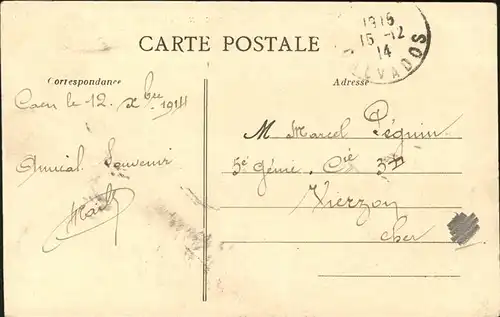 1915
15-12
14
CALVADOS
CARTE POSTALE
Correspondance
Adresse
Caen le 12. Xbre 1914
Amical Souvenir
M Marcel Péguin
5e Génie. Cie
Vierzon
Cher